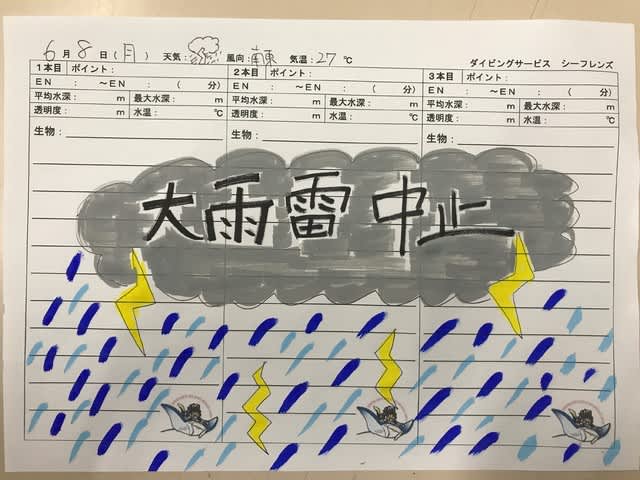 6月8日(月) 天気: 風向:南東 気温:27℃ ダイビングサービス シーフレンズ
1本目 ポイント: 2本目 ポイント: 3本目 ポイント:
EN : ～EN : ( 分) EN : ～EN : ( 分) EN : ～EN : ( 分)
平均水深: m 最大水深: m 平均水深: m 最大水深: m 平均水深: m 最大水深: m
透明度: m 水温: ℃ 透明度: m 水温: ℃ 透明度: m 水温: ℃
生物: 生物: 生物:
大雨雷 中止